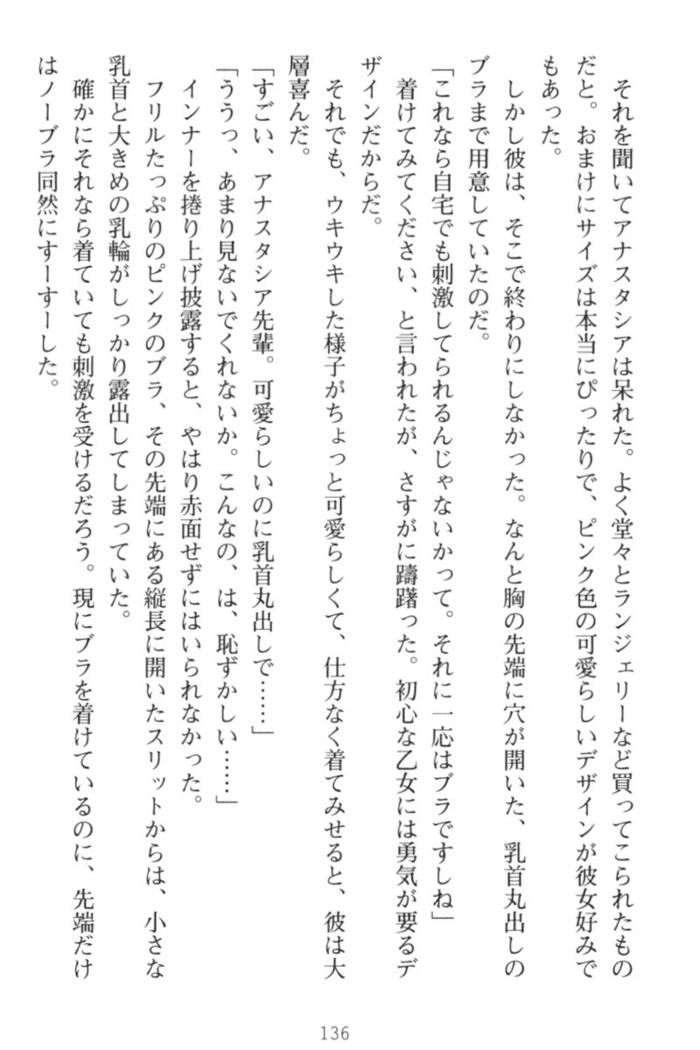 それを聞いてアナスタシアは呆れた。よく堂々とランジェリーなど買ってこられたもの
だと。おまけにサイズは本当にぴったりで、ピンク色の可愛らしいデザインが彼女好みで
もあった。
しかし彼は、そこで終わりにしなかった。なんと胸の先端に穴が開いた、乳首丸出しの
ブラまで用意していたのだ。
「これなら自宅でも刺激してられるんじゃないかって。それに一応はブラですしね」
着けてみてください、と言われたが、さすがに躊躇った。初心な乙女には勇気が要るデ
ザインだからだ。
それでも、ウキウキした様子がちょっと可愛らしくて、仕方なく着てみせると、彼は大
層喜んだ。
「すごい、アナスタシア先輩。可愛らしいのに乳首丸出しで……」
「ううっ、あまり見ないでくれないか。こんなの、は、恥ずかしい……」
インナーを捲り上げ披露すると、やはり赤面せずにはいられなかった。
フリルたっぷりのピンクのブラ、その先端にある縦長に開いたスリットからは、小さな
乳首と大きめの乳輪がしっかり露出してしまっていた。
確かにそれなら着ていても刺激を受けるだろう。現にブラを着けているのに、先端だけ
はノーブラ同然にすーすーした。
136